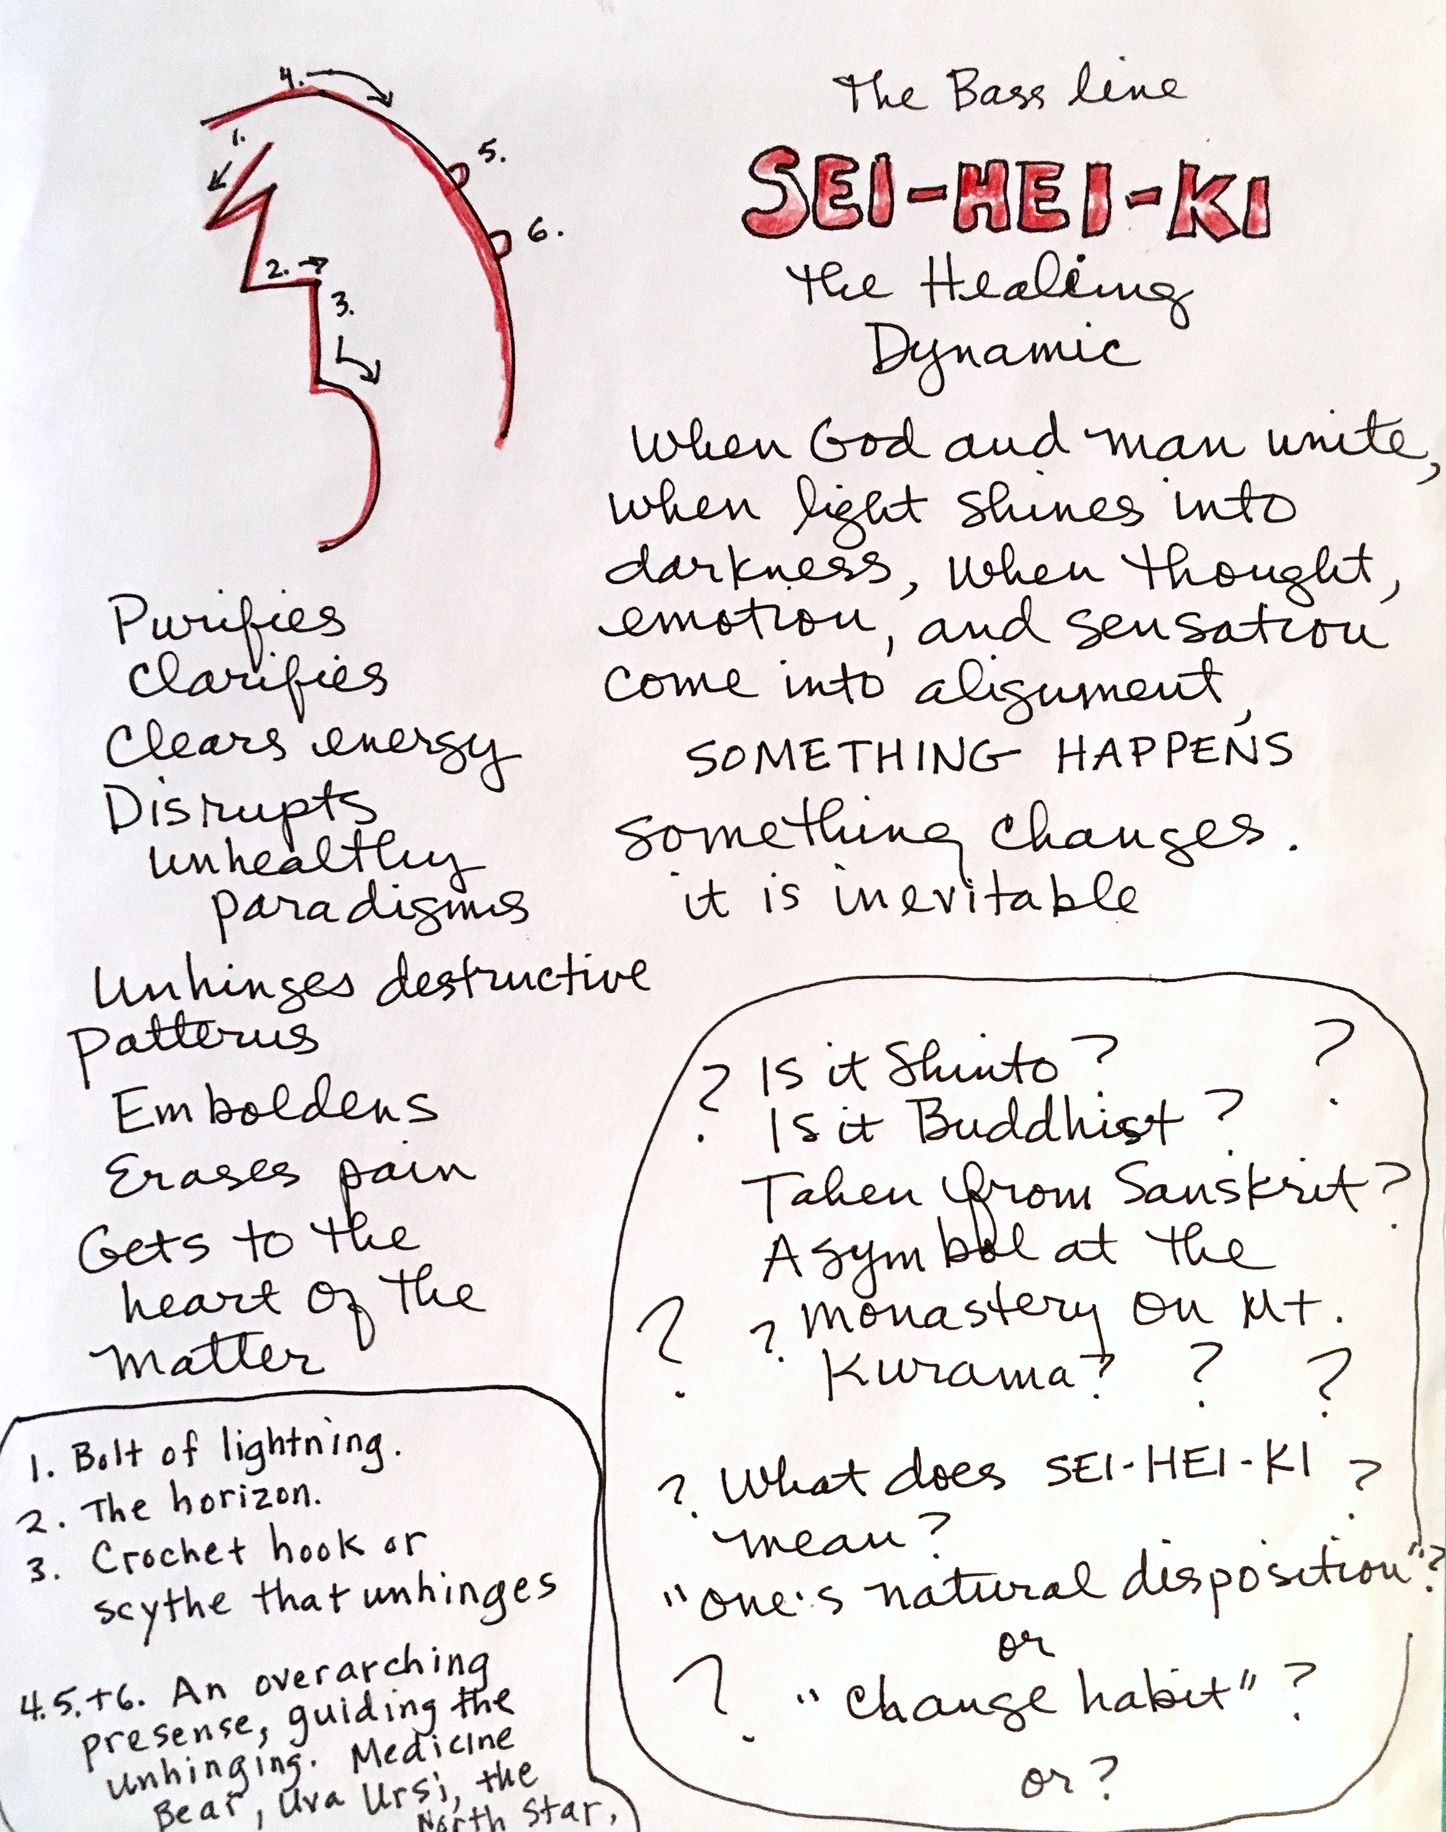 4.
1.
5.
6.
2.
3.
The Bass line
SEI-HEI-KI
The Healing
Dynamic
When God and man unite,
when light shines into
darkness, when thought,
emotion, and sensation
come into alignment,
SOMETHING HAPPENS
something changes.
it is inevitable
Purifies
Clarifies
Clears energy
Disrupts
unhealthy
paradigms
Unhinges destructive
patterns
Emboldens
Erases pain
Gets to the
heart of the
matter
1. Bolt of lightning.
2. The horizon.
3. Crochet hook or
scythe that unhinges
4.5.+6. An overarching
presense, guiding the
unhinging. Medicine
Bear, Uva Ursi, the
North Star,
? Is it Shinto? ?
Is it Buddhist?
Taken from Sanskrit?
A symbol at the
? ? monastery on Mt.
Kurama? ? ?
? What does SEI-HEI-KI ?
mean?
"one's natural disposition"?
or
? "change habit"?
or?